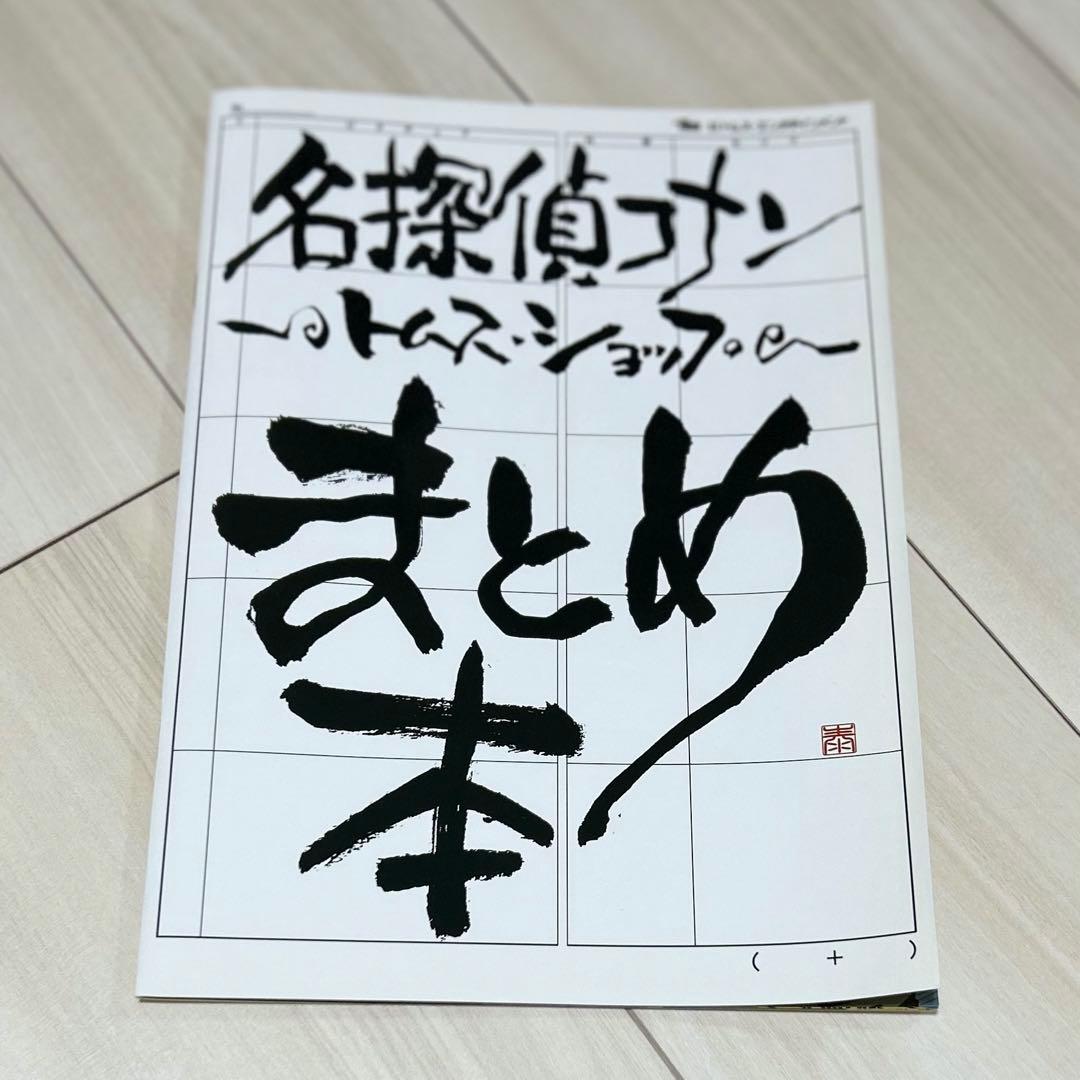 名探偵コナン
〜トムス・ショップ〜
まとめ
本
泰
( + )